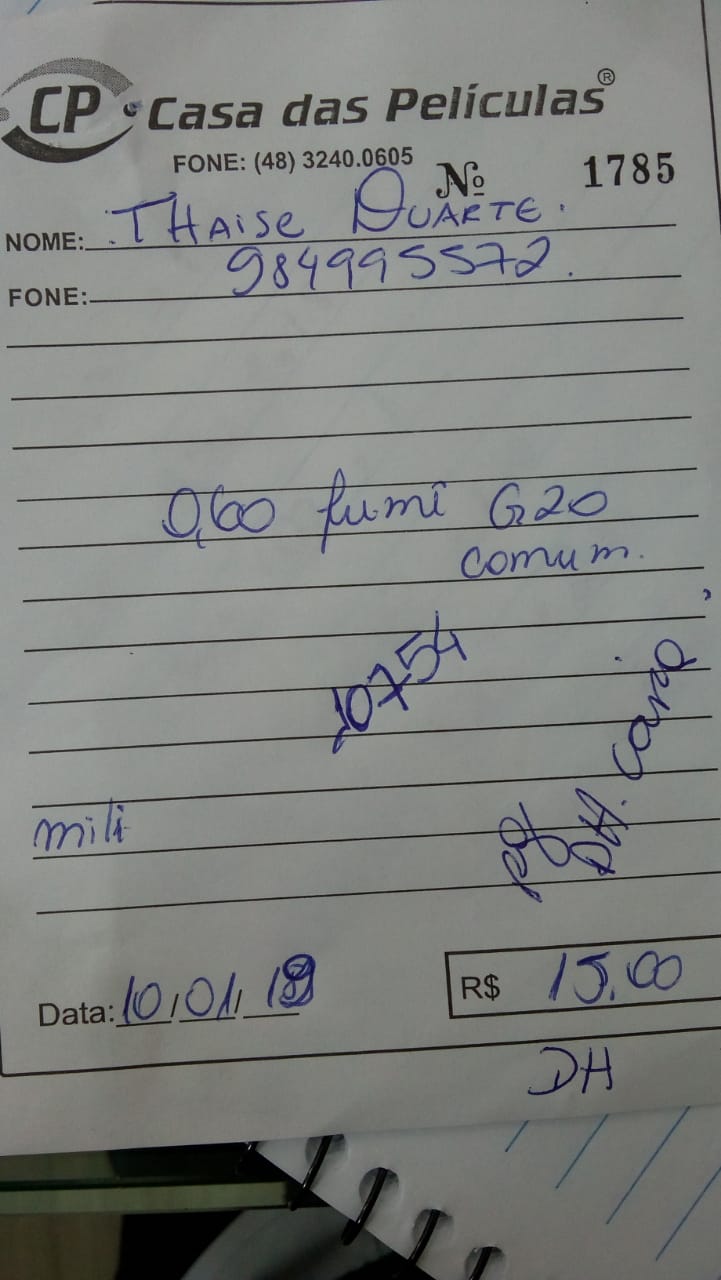 CP Casa das Películas®
FONE: (48) 3240.0605
Nº 1785
NOME: THAISE DUARTE.
984995572.
FONE:
0,60 fumê G20
comum.
10754
mili
pg
DH. caixa
Data: 10/01/19
R$ 15,00
DH